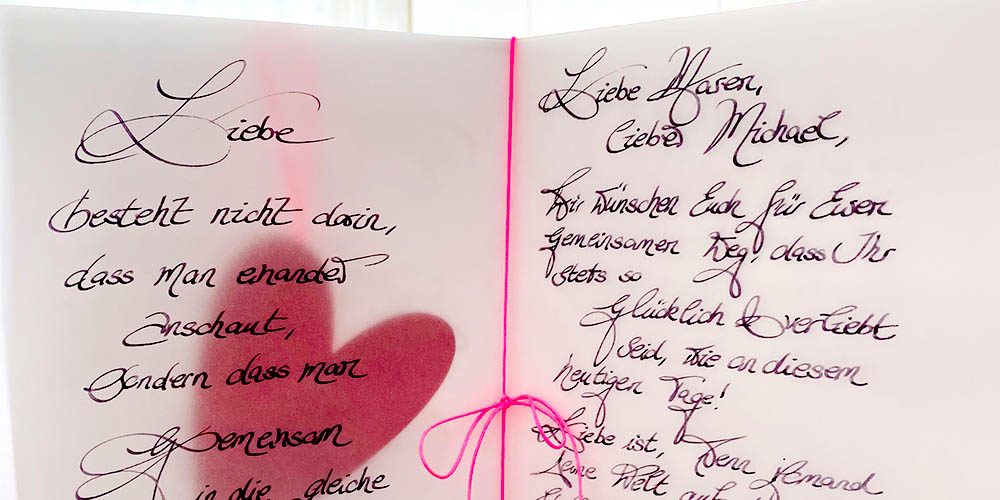 Liebe
besteht nicht darin,
dass man einander
anschaut,
sondern dass man
gemeinsam
in die gleiche
Liebe Maren,
lieber Michael,
Wir wünschen Euch für Euren
gemeinsamen Weg, dass Ihr
stets so
glücklich & verliebt
seid, wie an diesem
heutigen Tage!
Liebe ist, wenn jemand
Deine Welt auf